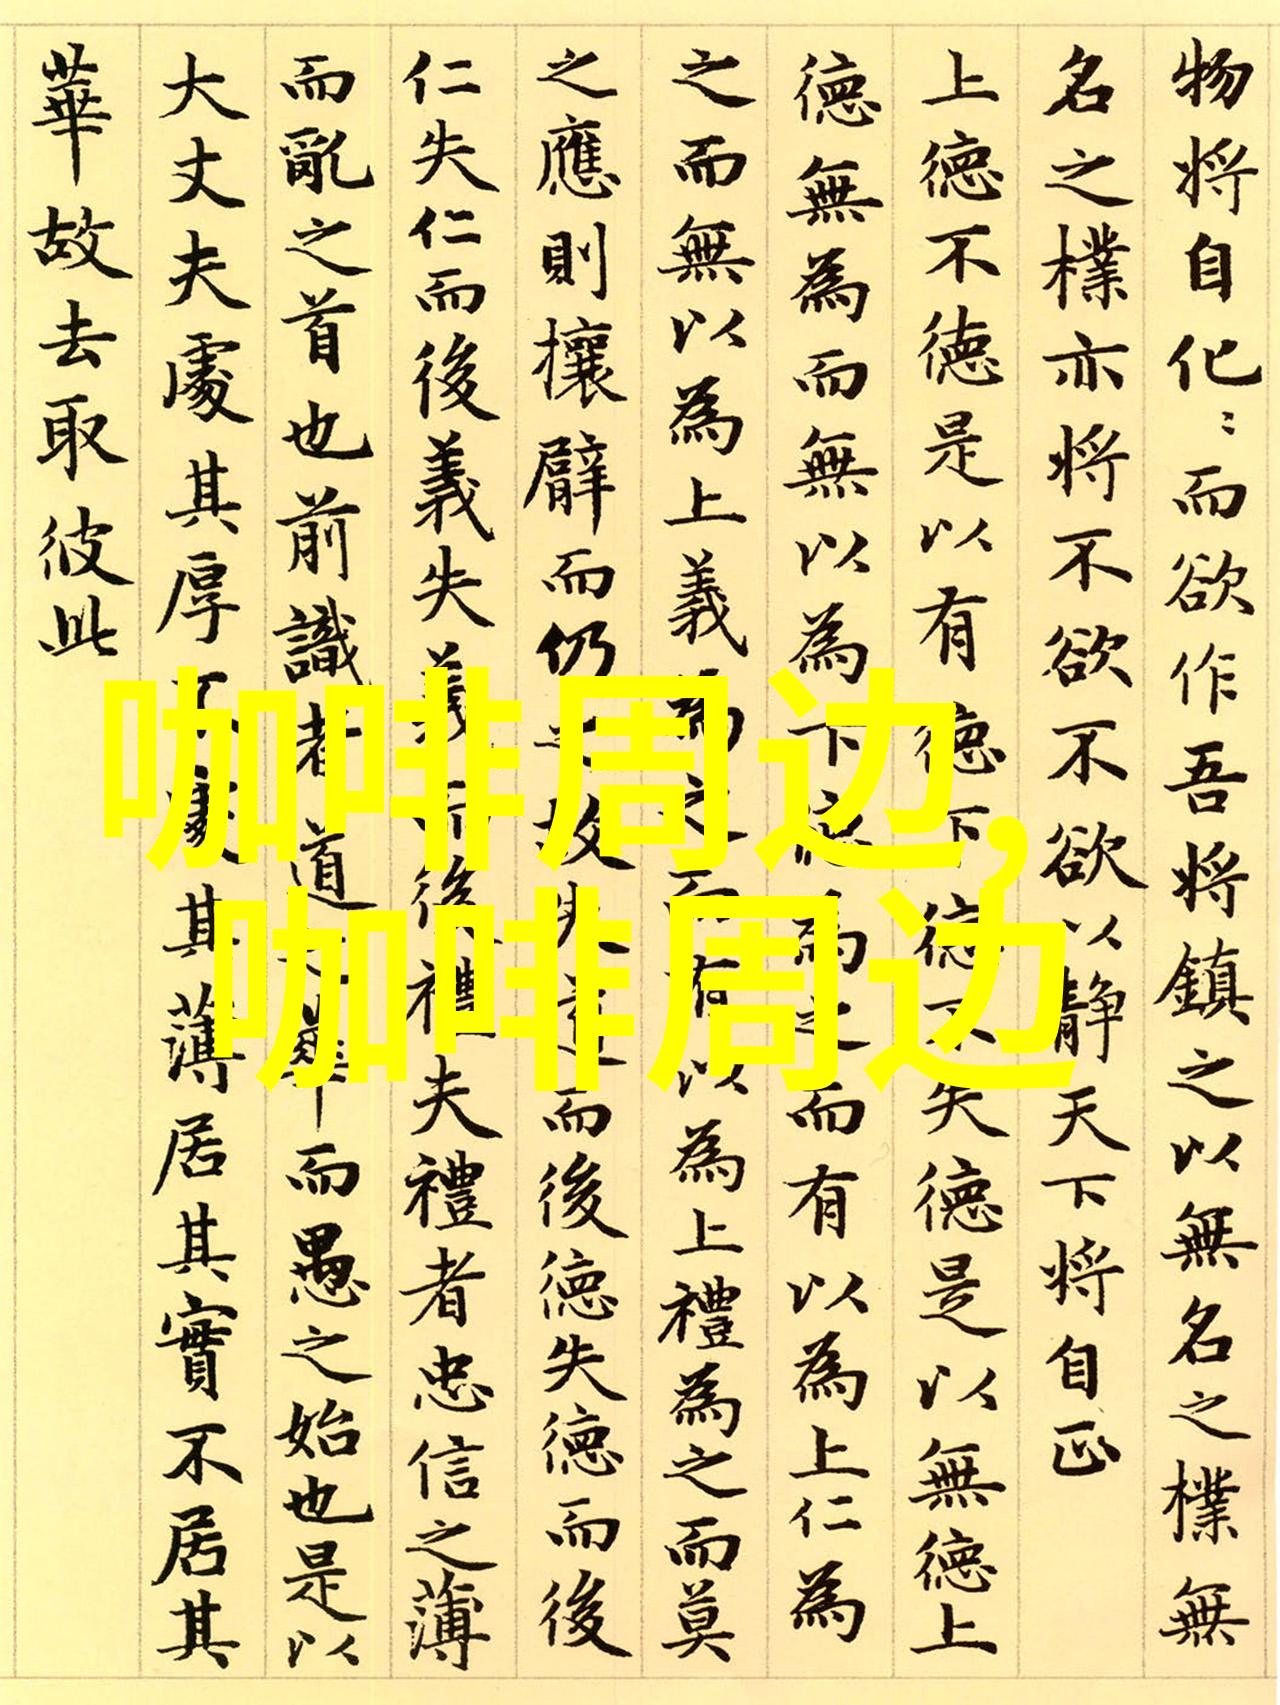 物将自化〻而欲作吾将鎮之以無名之樸無
名之樸亦将不欲不欲以静天下将自正
上德不德是以有德下德不失德是以無德上
德無為而無以為下德為之而有以為上仁為
之而無以為上義為之而有以為上禮為之而莫
之應則攘臂而仍之故失道而後德失德而後
仁失仁而後義失義而後禮夫禮者忠信之薄
而亂之首也前識者道之華而愚之始也是以
大丈夫處其厚不處其薄居其實不居其
華故去取彼此
咖啡周边,
咖啡周边